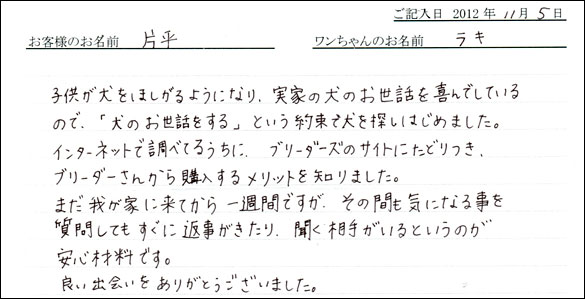 ご記入日 2012年 11月 5日
お客様のお名前 片平 ワンちゃんのお名前 ラキ
子供が犬をほしがるようになり、実家の犬のお世話を喜んでしている
ので、「犬のお世話をする」という約束で犬を探しはじめました。
インターネットで調べてるうちに、ブリーダーズのサイトにたどりつき、
ブリーダーさんから購入するメリットを知りました。
まだ我が家に来てから一週間ですが、その間も気になる事を
質問してもすぐに返事がきたり、聞く相手がいるというのが
安心材料です。
良い出会いをありがとうございました。